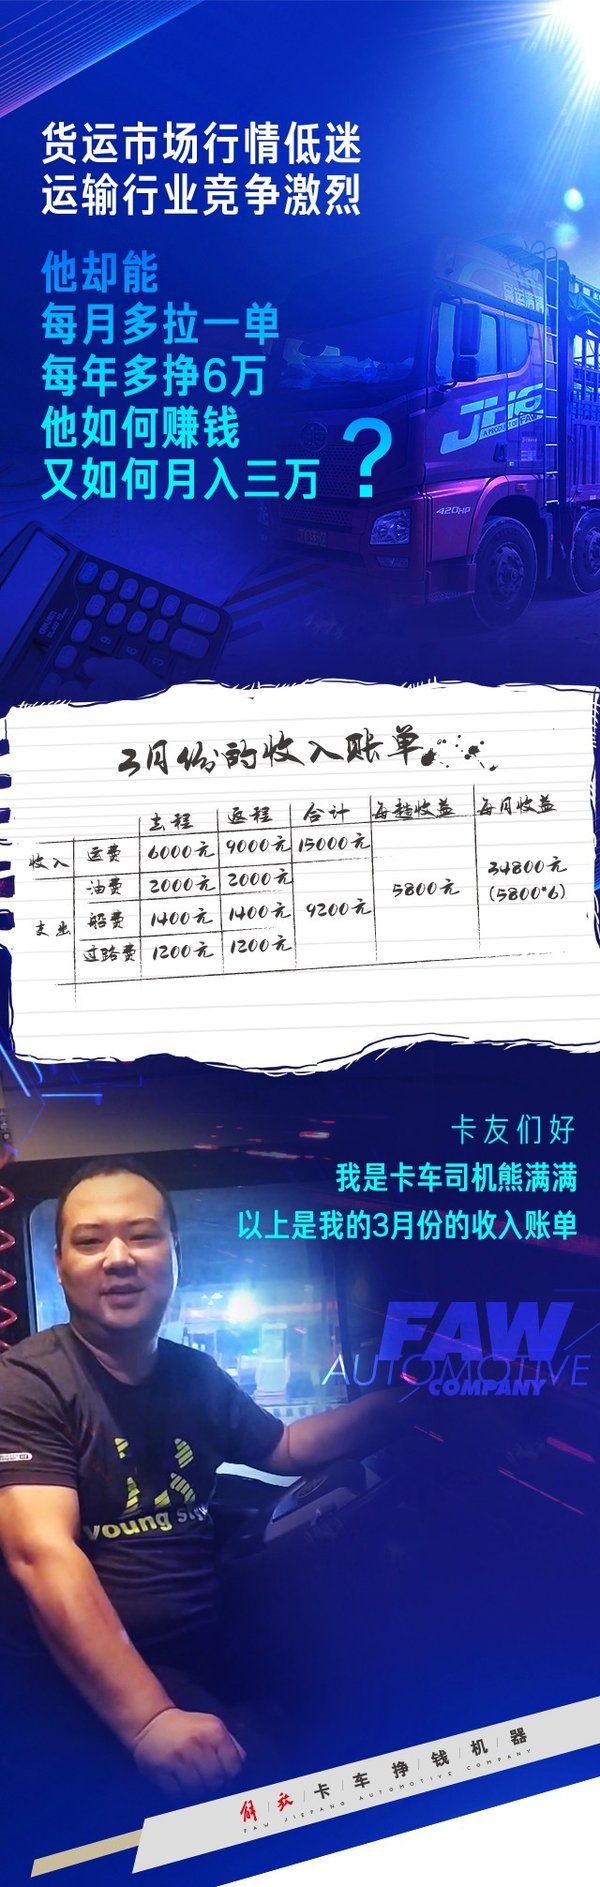 货运市场行情低迷
运输行业竞争激烈
他却能
每月多拉一单
每年多挣6万
他如何赚钱
又如何月入三万？
JH6
420HP
3月份的收入账单
去程 返程 合计 每趟收益 每月收益
收入 运费 6000元 9000元 15000元
支出 油费 2000元 2000元
船费 1400元 1400元 9200元 5800元 34800元
(5800*6)
过路费 1200元 1200元
卡友们好
我是卡车司机熊满满
以上是我的3月份的收入账单
FAW
AUTOMOTIVE
COMPANY
young
解放卡车挣钱机器
FAW JIEFANG AUTOMOTIVE COMPANY